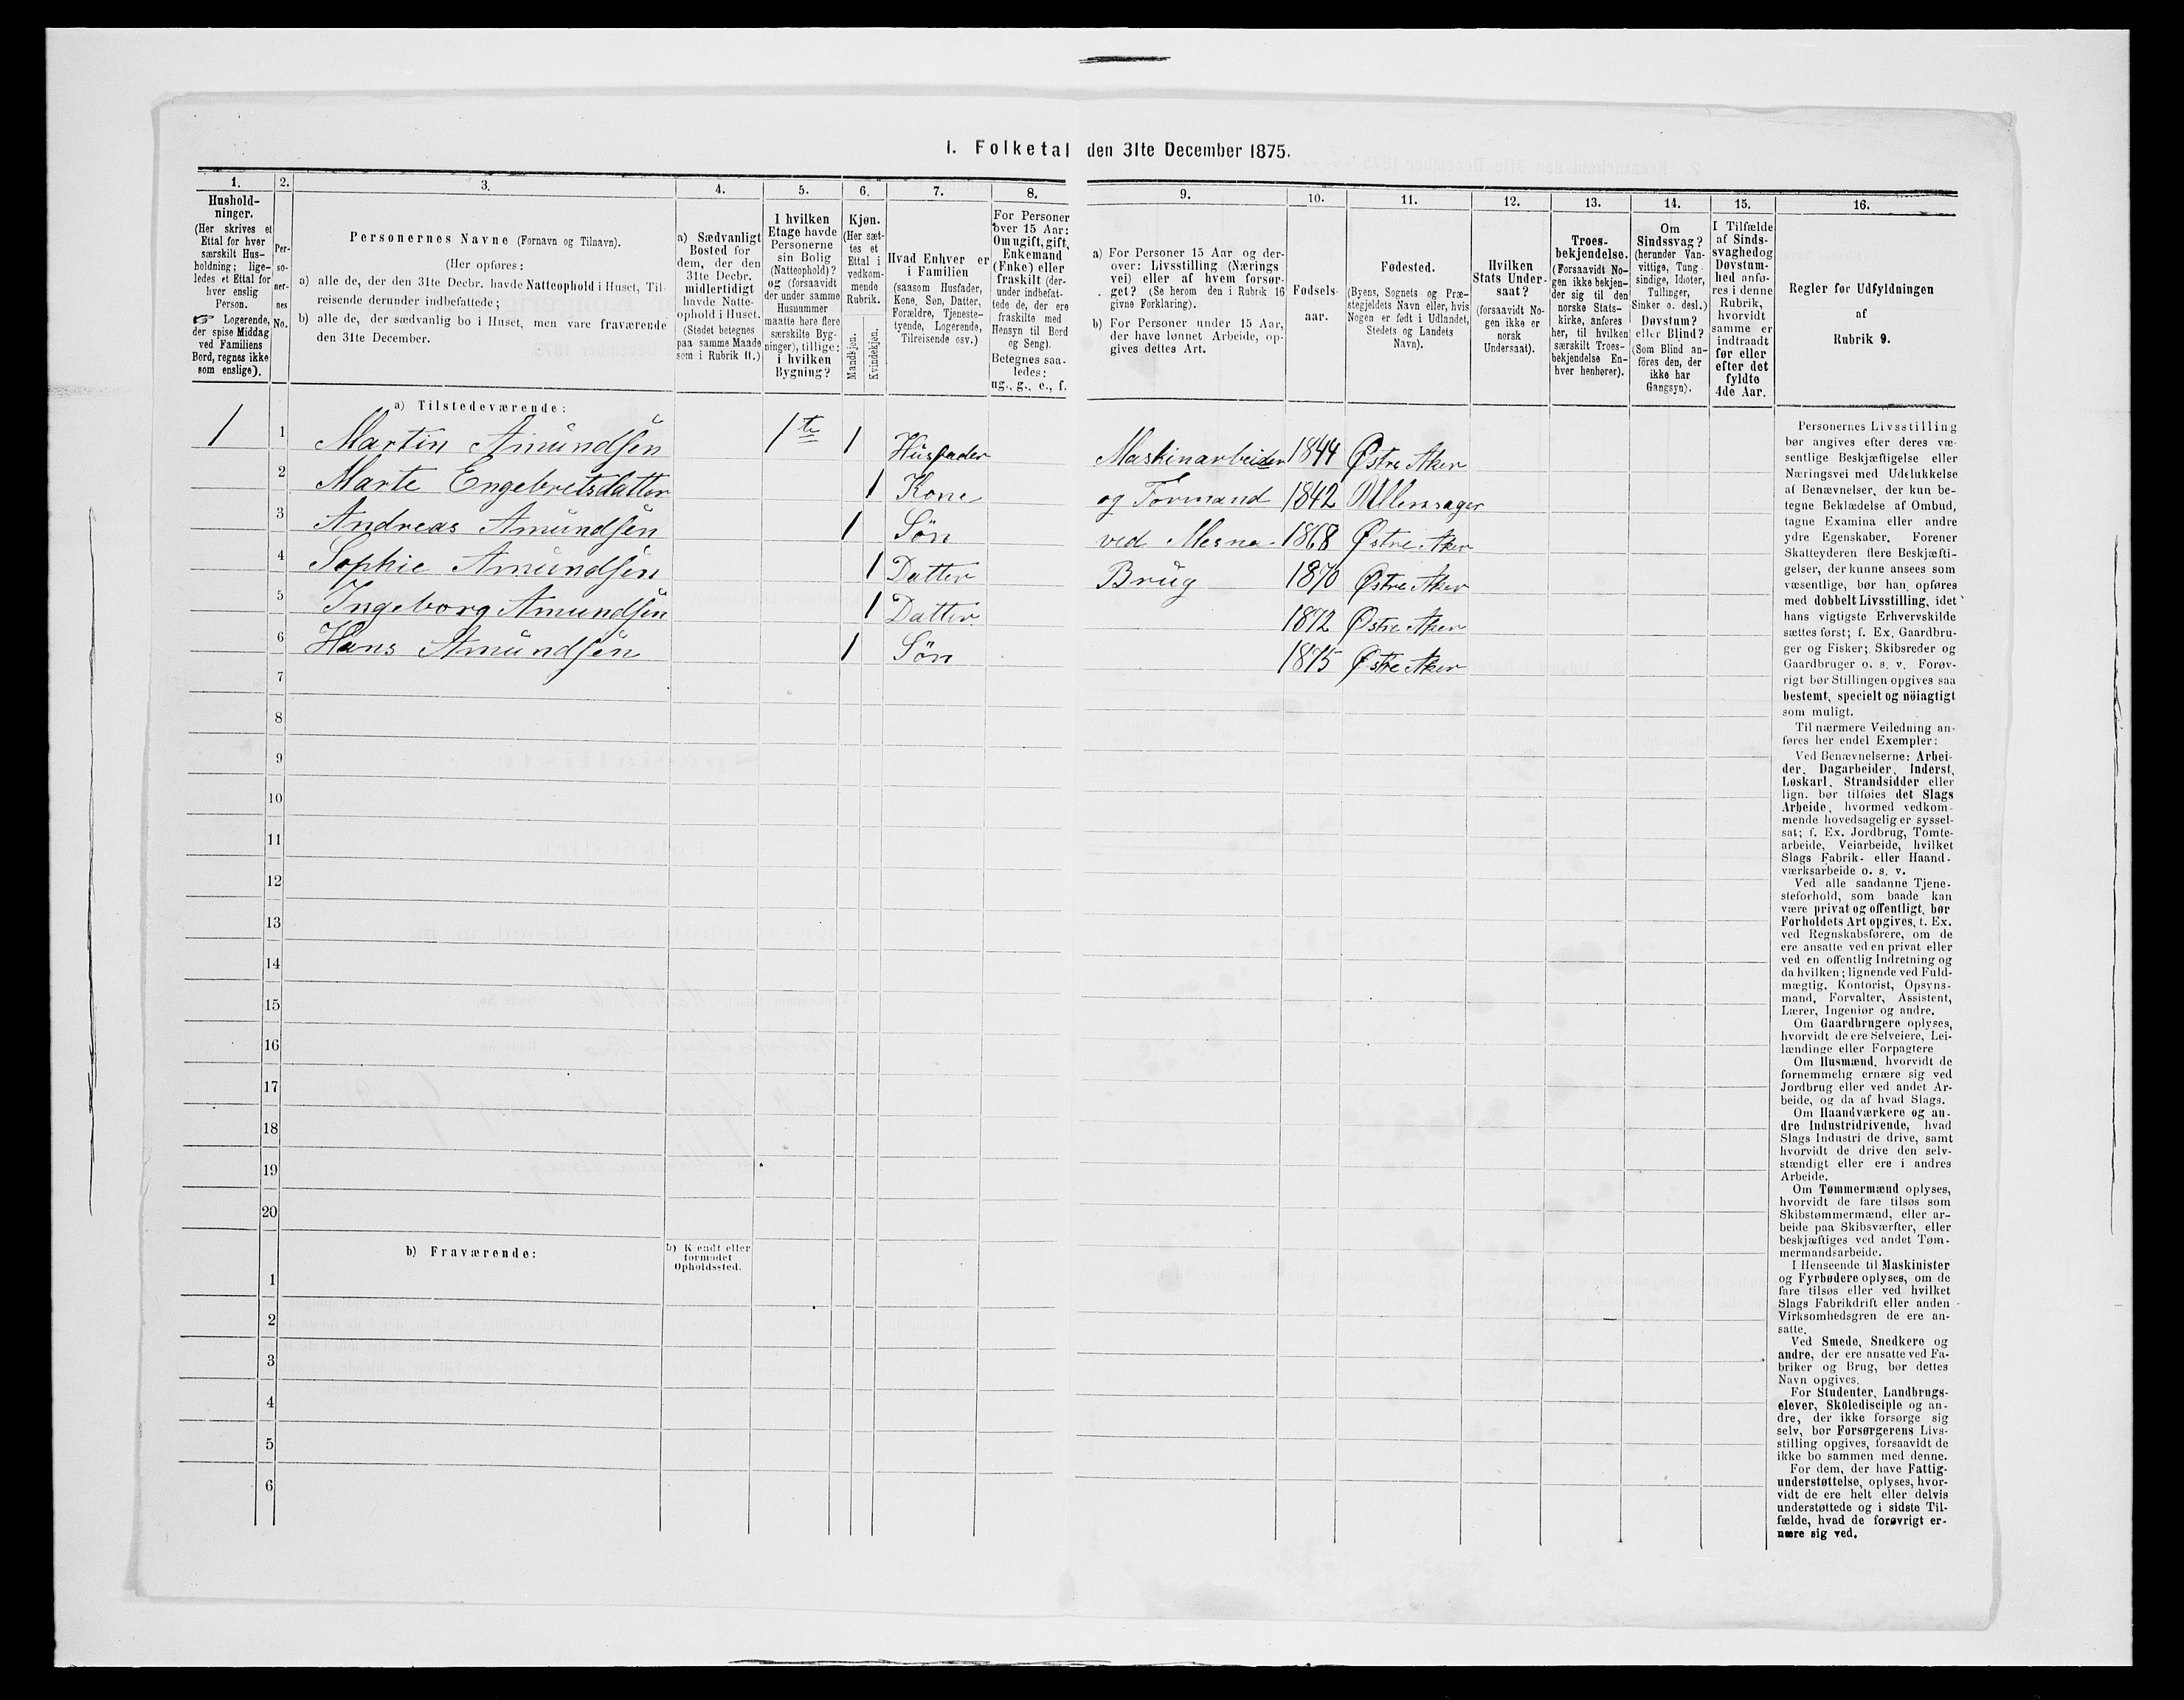 1. Folketal den 31te December 1875.
1.
Hushold-
ninger.
(Her skrives et
Ettal for hver
særskilt Hus-
holdning; lige-
ledes et Ettal for
hver enslig
Person.
☞ Logerende,
der spise Middag
ved Familiens
Bord, regnes ikke
som enslige).
2.
Per-
so-
ner-
nes
No.
3.
Personernes Navne (Fornavn og Tilnavn).
(Her opføres:
a) alle de, der den 31te Decbr. havde Natteophold i Huset, Til-
reisende derunder indbefattede;
b) alle de, der sædvanlig bo i Huset, men vare fraværende
den 31te December.
4.
a) Sædvanligt
Bosted for
dem, der den
31te Decbr.
midlertidigt
havde Natte-
ophold i Huset.
(Stedet betegnes
paa samme Maade
som i Rubrik 11.)
5.
I hvilken
Etage havde
Personerne
sin Bolig
(Natteophold)?
og (forsaavidt
der under samme
Husnummer
maatte høre flere
særskilte Byg-
ninger), tillige:
i hvilken
Bygning?
6.
Kjøn.
(Her sæt-
tes et
Ettal i
vedkom-
mende
Rubrik.
Mandkjøn.
Kvindekjøn.
7.
Hvad Enhver er
i Familien
(saasom Husfader,
Kone, Søn, Datter,
Forældre, Tjeneste-
tyende, Logerende,
Tilreisende osv.)
8.
For Personer
over 15 Aar:
Om ugift, gift,
Enkemand
(Enke) eller
fraskilt (der-
under indbefat-
tede de, der ere
fraskilte med
Hensyn til Bord
og Seng).
Betegnes saa-
ledes:
ug., g., e., f.
9.
a) For Personer 15 Aar og der-
over: Livsstilling (Nærings
vei) eller af hvem forsør-
get? (Se herom den i Rubrik 16
givne Forklaring).
b) For Personer under 15 Aar,
der have lønnet Arbeide, op-
gives dettes Art.
10.
Fødsels-
aar.
11.
Fødested.
(Byens, Sognets og Præ-
stegjeldets Navn eller, hvis
Nogen er født i Udlandet,
Stedets og Landets
Navn).
12.
Hvilken
Stats Under-
saat?
(forsaavidt No-
gen ikke er
norsk
Undersaat).
13.
Troes-
bekjendelse.
(Forsaavidt No-
gen ikke bekjen-
der sig til den
norske Stats-
kirke, anføres
her, til hvilken
særskilt Troes-
bekjendelse En-
hver henhører).
14.
Om
Sindssvag?
(herunder Van-
vittige, Tung-
sindige, Idioter,
Tullinger,
Sinker o. desl.)
Døvstum?
eller Blind?
(Som Blind an-
føres den, der
ikke har
Gangsyn).
15.
I Tilfælde
af Sinds-
svaghed og
Døvstum-
hed anfø-
res i denne
Rubrik,
hvorvidt
samme er
indtraadt
før eller
efter det
fyldte
4de Aar.
16.
Regler for Udfyldningen
af
Rubrik 9.
a) Tilstedeværende:
1 1 Martin Amundsen 1te 1 Husfader Maskinarbeider 1844 Østre Aker
2 Marte Engebretsdatter 1 Kone og Formand 1842 Ullensager
3 Andreas Amundsen 1 Søn ved Mesna 1868 Østre Aker
4 Sophie Amundsen 1 Datter Brug 1870 Østre Aker
5 Ingeborg Amundsen 1 Datter 1872 Østre Aker
6 Hans Amundsen 1 Søn 1875 Østre Aker
7
8
9
10
11
12
13
14
15
16
17
18
19
20
b) Fraværende:
b) Kjendt eller
formodet
Opholdssted.
1
2
3
4
5
6
Personernes Livsstilling
bør angives efter deres væ-
sentlige Beskjæftigelse eller
Næringsvei med Udelukkelse
af Benævnelser, der kun be-
tegne Beklædelse af Ombud,
tagne Examina eller andre
ydre Egenskaber. Forener
Skatteyderen flere Beskjæfti-
gelser, der kunne ansees som
væsentlige, bør han opføres
med dobbelt Livsstilling, idet
hans vigtigste Erhvervskilde
sættes først; f. Ex. Gaardbru-
ger og Fisker; Skibsreder og
Gaardbruger o. s. v. Forøv-
rigt bør Stillingen opgives saa
bestemt, specielt og nöiagtigt
som muligt.
Til nærmere Veiledning an-
føres her endel Exempler:
Ved Benævnelserne: Arbei-
der, Dagarbeider, Inderst,
Løskarl, Strandsidder eller
lign. bør tilføies det Slags
Arbeide, hvormed vedkom-
mende hovedsagelig er syssel-
sat; f. Ex. Jordbrug, Tomte-
arbeide, Veiarbeide, hvilket
Slags Fabrik- eller Haand-
værksarbeide o. s. v.
Ved alle saadanne Tjene-
steforhold, som baade kan
være privat og offentligt, bør
Forholdets Art opgives, t. Ex.
ved Regnskabsførere, om de
ere ansatte ved en privat eller
ved en offentlig Indretning og
da hvilken; lignende ved Fuld-
mægtig, Kontorist, Opsyns-
mand, Forvalter, Assistent,
Lærer, Ingeniør og andre.
Om Gaardbrugere oplyses,
hvorvidt de ere Selveiere, Lei-
lændinge eller Forpagtere
Om Husmænd, hvorvidt de
fornemmelig ernære sig ved
Jordbrug eller ved andet Ar-
beide, og da af hvad Slags.
Om Haandværkere og an-
dre Industridrivende, hvad
Slags Industri de drive, samt
hvorvidt de drive den selv-
stændigt eller ere i andres
Arbeide.
Om Tømmermænd oplyses,
hvorvidt de fare tilsøs som
Skibstømmermænd, eller ar-
beide paa Skibsværfter, eller
beskjæftiges ved andet Tøm-
mermandsarbeide.
I Henseende til Maskinister
og Fyrbødere oplyses, om de
fare tilsøs eller ved hvilket
Slags Fabrikdrift eller anden
Virksomhedsgren de ere an-
satte.
Ved Smede, Snedkere og
andre, der ere ansatte ved Fa-
briker og Brug, bør dettes
Navn opgives.
For Studenter, Landbrugs-
elever, Skoledisciple og an-
dre, der ikke forsørge sig
selv, bør Forsørgerens Livs-
stilling opgives, forsaavidt de
ikke bo sammen med denne.
For dem, der have Fattig-
understøttelse, oplyses, hvor-
vidt de ere helt eller delvis
understøttede og i sidste Til-
fælde, hvad de forøvrigt er-
nære sig ved.